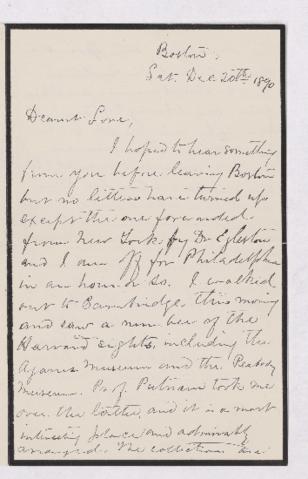 Boston,
Sat. Dec. 20th 1890
Dearest Love,
I hoped to hear something
from you before leaving Boston
but no letters have turned up
except the one forwarded
from New York by Dr Egleston
and I am off for Philadelphia
in an hour or so. I walked
out to Cambridge this morning
and saw a number of the
Harvard sights, including the
Agassiz Museum and the Peabody
Museum. Prof Putnam took me
over the latter, and it is a most
interesting place and admirably
arranged. The collections are